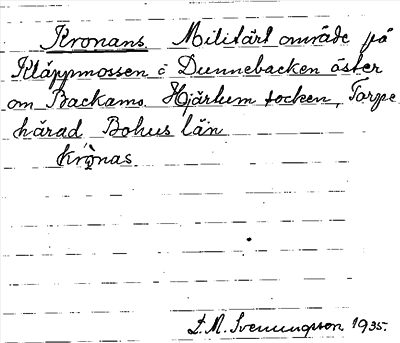 Kronans Militärt område på
Kläppmossen i Dunnebacken öster
om Backamo. Hjärtum socken, Torpe
härad Bohus län
krònas
D.M. Svenungsson 1935.